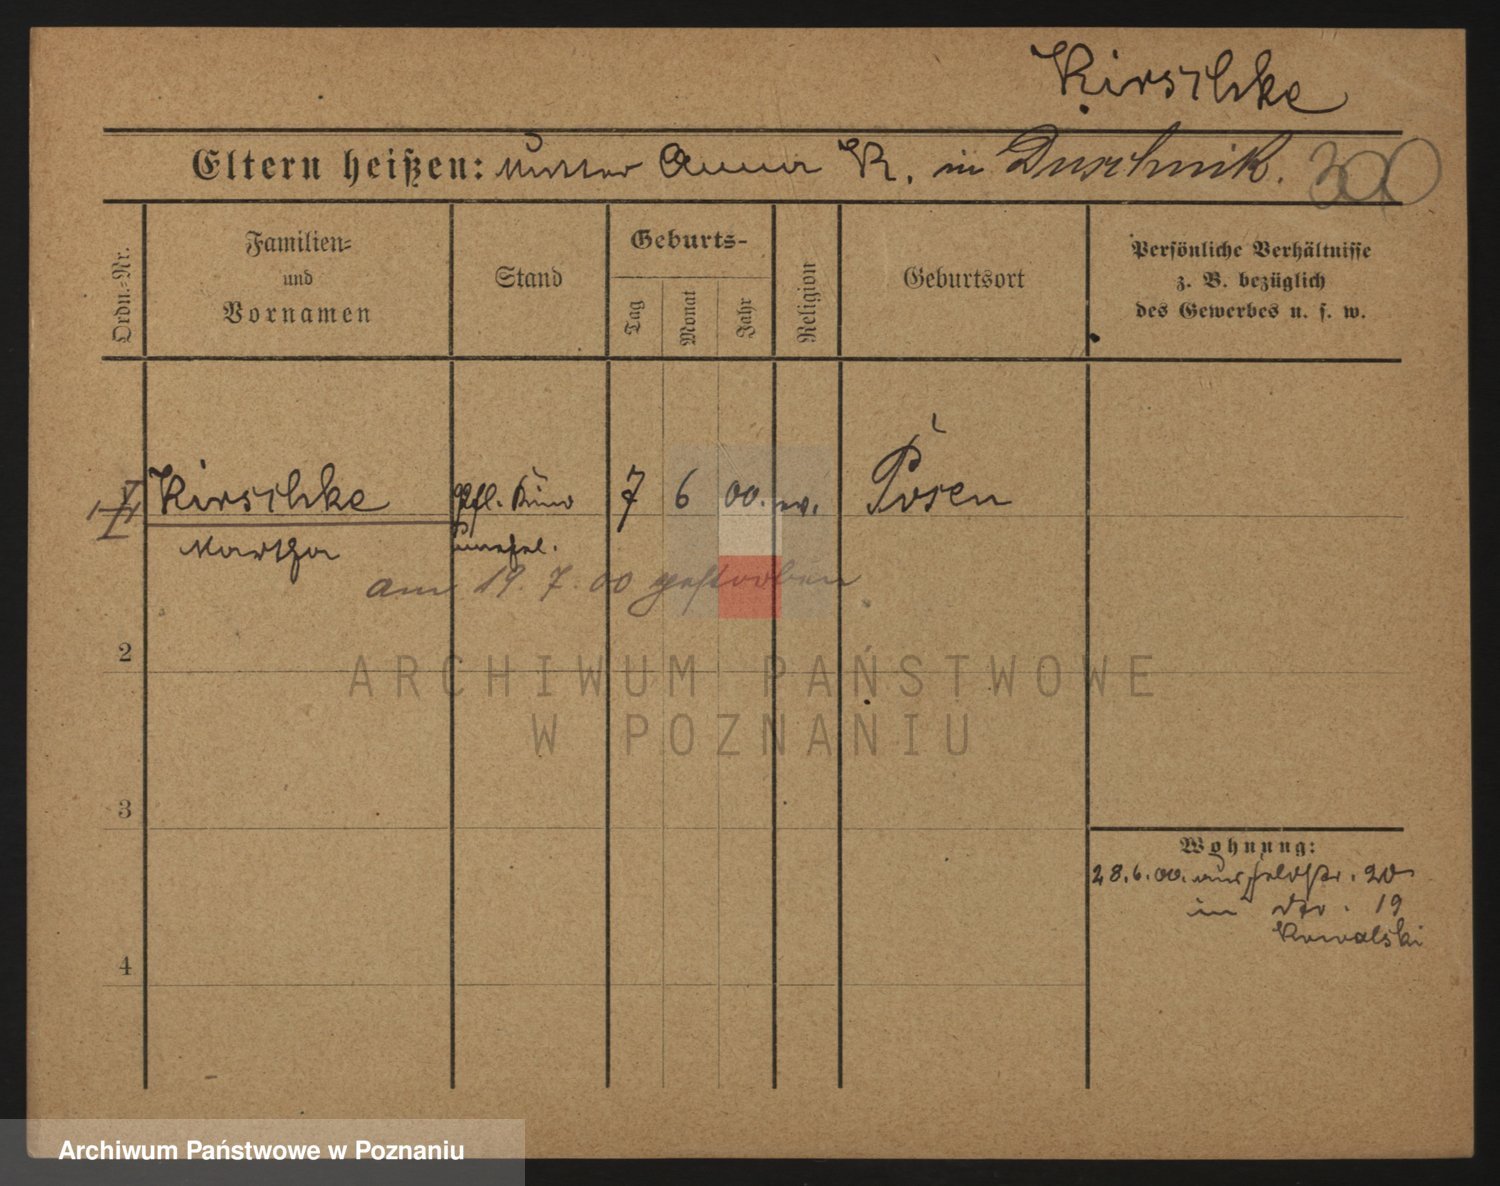 Kirschke
Eltern heißen: Mutter Anna K. in Duschnik. 300
Ordn.-Nr.
Familien-
und
Vornamen
Stand
Geburts-
Tag
Monat
Jahr
Religion
Geburtsort
Persönliche Verhältnisse
z. B. bezüglich
des Gewerbes u. s. w.
Kirschke Pfl. Kind 7 6 00. ev. Posen
Martha unehel.
am 19. 7. 00 gestorben
2
ARCHIWUM PAŃSTWOWE
W POZNANIU
3
Wohnung:
28.6.00. aus Feldstr. 20
in 19
Kowalski
4
Archiwum Państwowe w Poznaniu